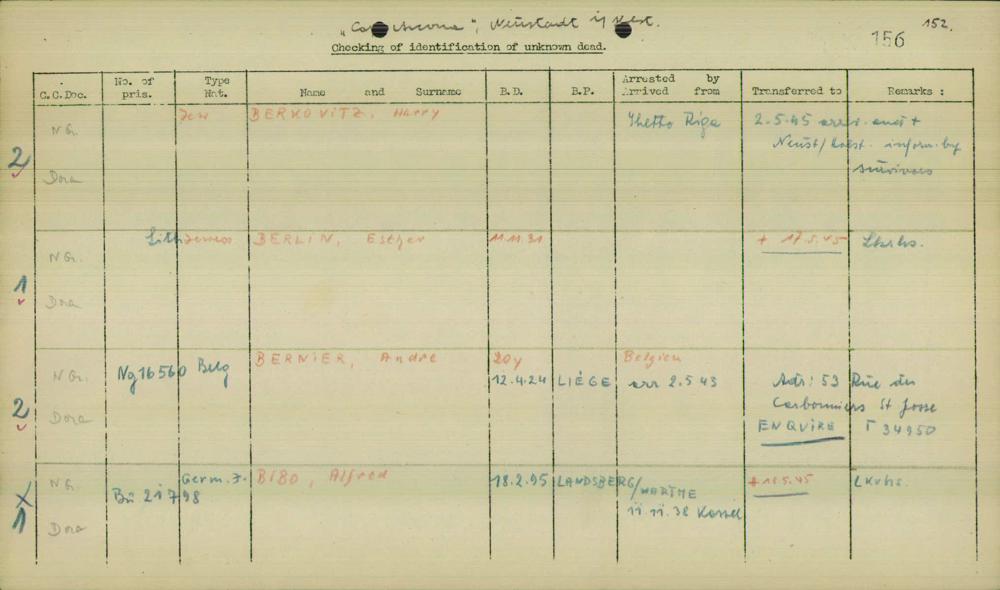 "Cap Arcona", Neustadt i/Holst.
152.
156
Checking of identification of unknown dead.
C.C.Doc. No. of pris. Type Nat. Name and Surname B.D. B.P. Arrested by Arrived from Transferred to Remarks :
2 N Gr. Jew BERKOVITZ, Harry Ghetto Riga 2.5.45 and +
Neust/Holst. inform. by
Dora survivors
1 N Gr. Lith Jewess BERLIN, Esther 11.11.31 + 17.5.45
Dora
2 N Gr. Ng 16560 Belg BERNIER, Andre 20y Belgien
12.4.24 LIÉGE arr 2.5 43 Adr: 53 Rue des
Carbonniers St Josse
Dora ENQUIRE T 34950
X 1 N Gr. Bü 21798 Germ. J. BIBO, Alfred 18.2.95 LANDSBERG/WARTHE + 18.5.45
11.11.38 Kassel
Dora